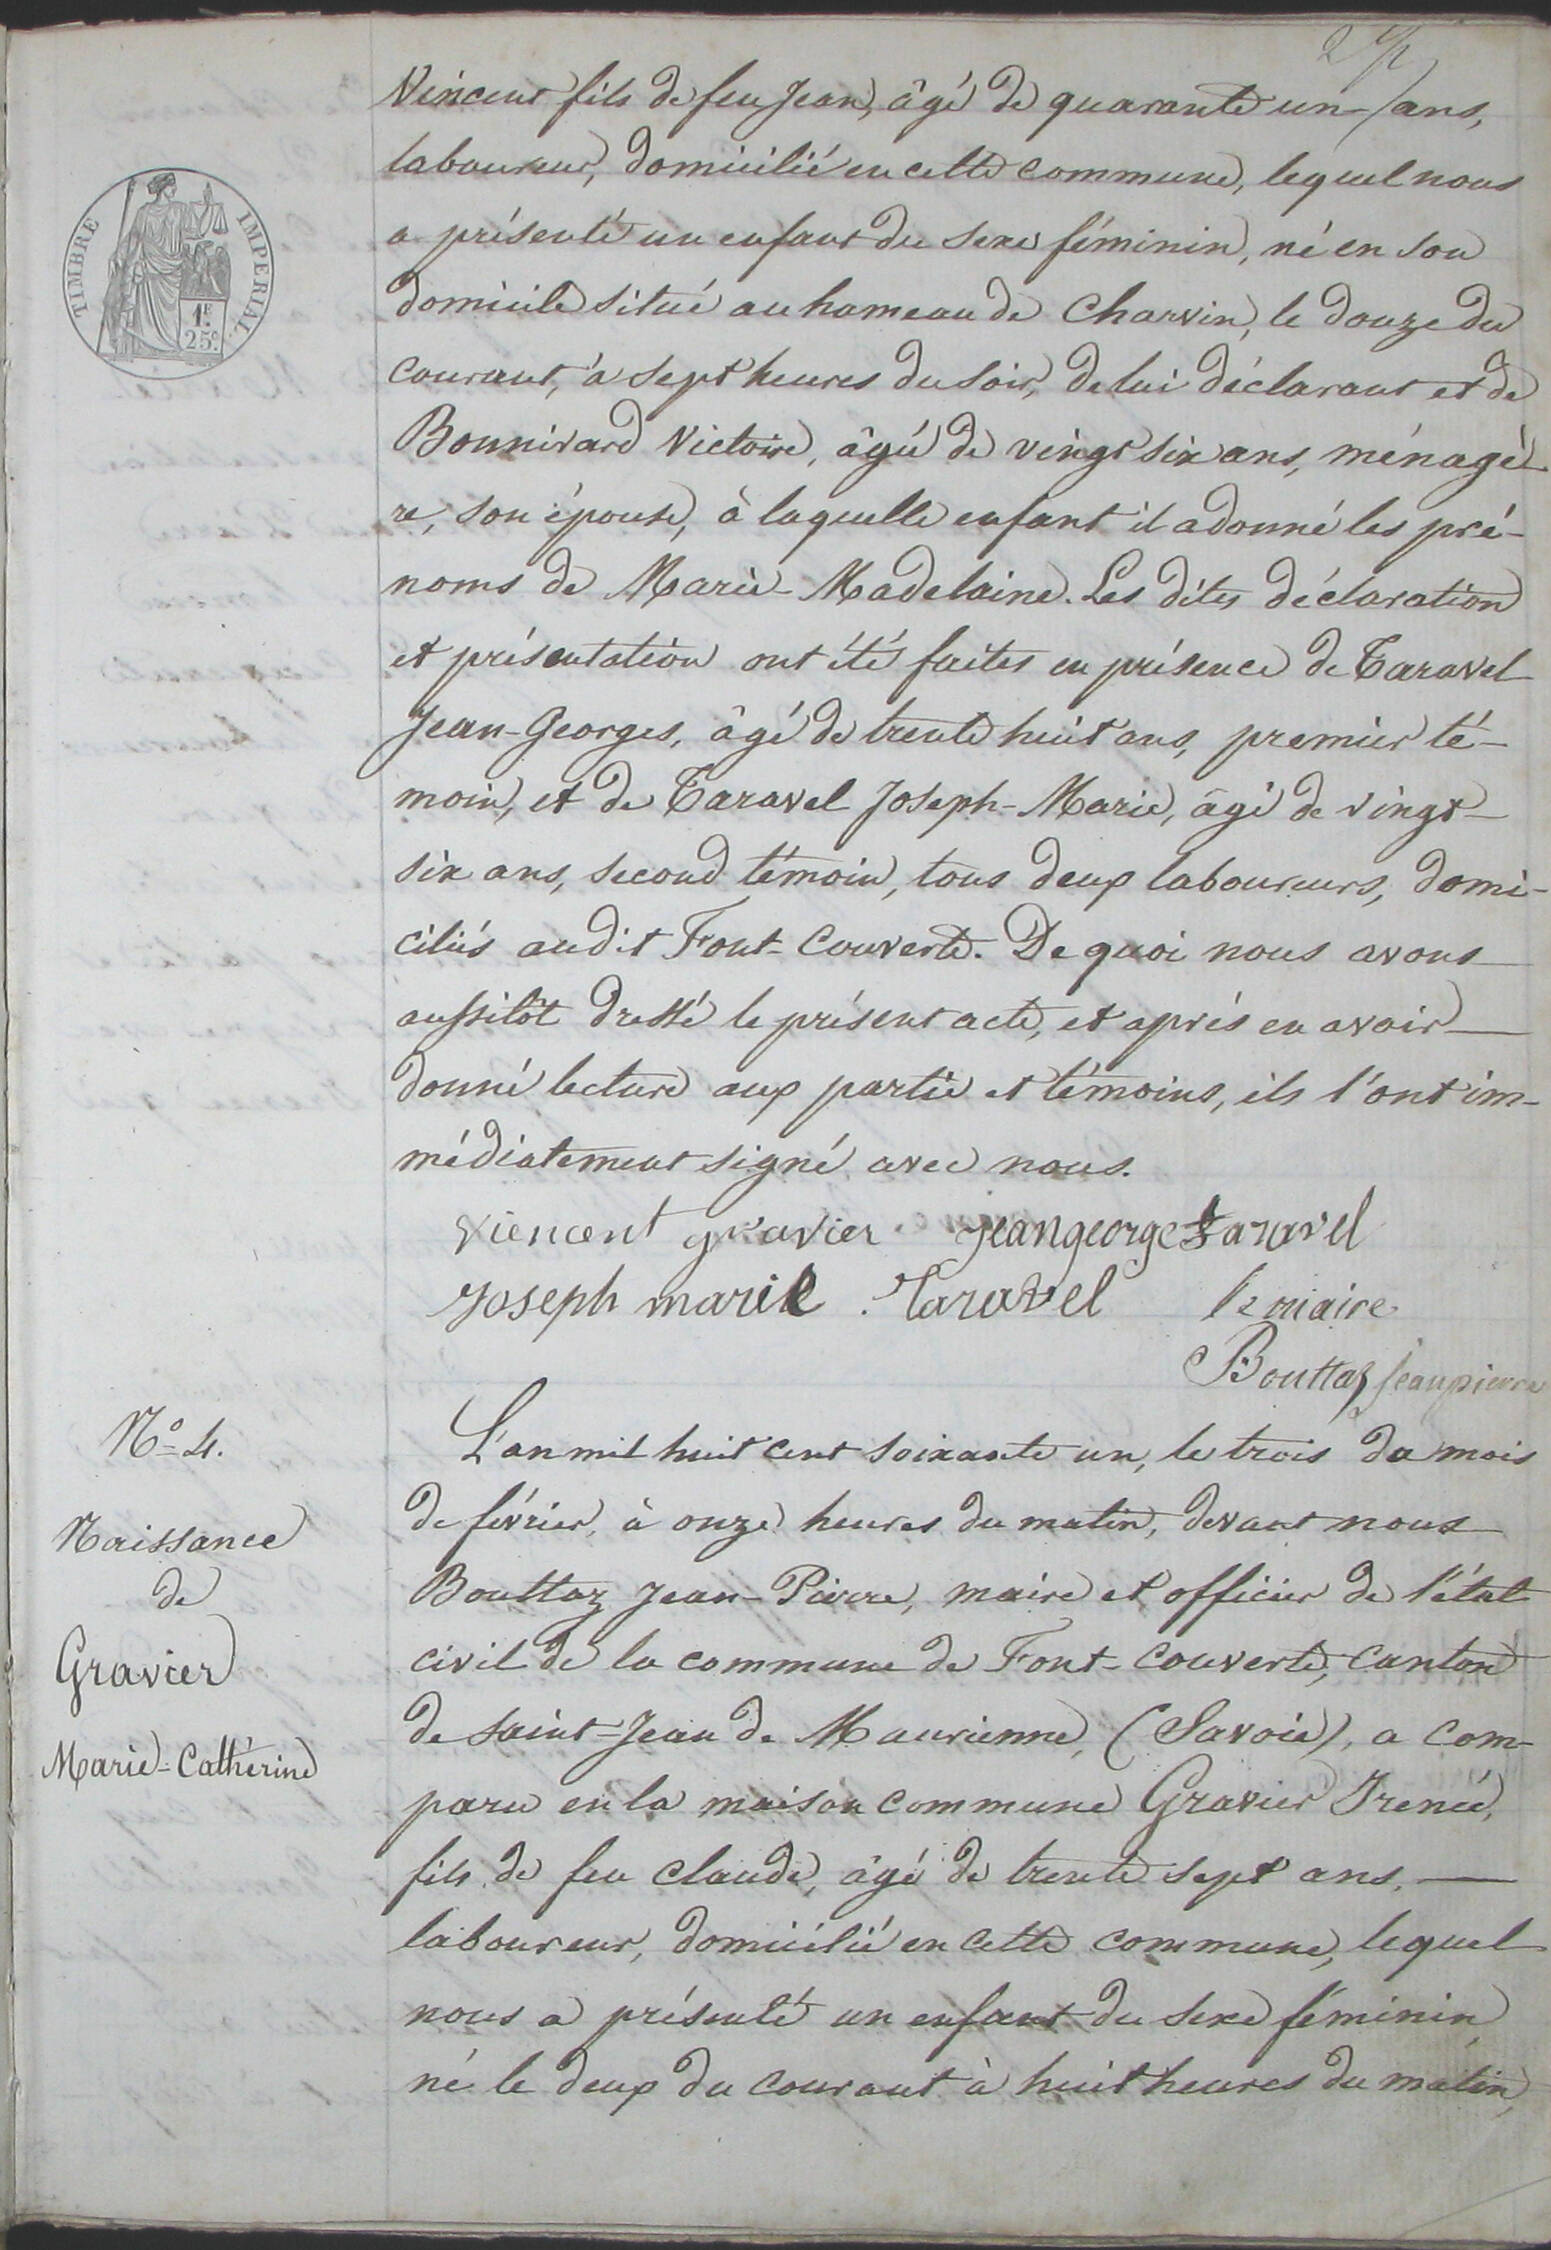 Vincent fils de feu Jean, âgé de quarante un ans,
laboureur, domicilié en cette commune, lequel nous
a présenté un enfant du sexe féminin, né en son
domicile situé au hameau de Charvin, le douze du
courant, à sept heures du soir, de lui déclarant et de
Bonnivard Victoire, âgée de vingt six ans, ménagè-
re, son épouse, à laquelle enfant il a donné les pré-
noms de Marie-Madelaine. Les dites déclaration
et présentation ont été faites en présence de Taravel
Jean-Georges, âgé de trente huit ans, premier té-
moin, et de Taravel Joseph-Marie, âgé de vingt-
six ans, second témoin, tous deux laboureurs, domi-
ciliés audit Font-Couverte. De quoi nous avons
aussitôt dressé le présent acte, et après en avoir
donné lecture aux partie et témoins, ils l'ont im-
médiatement signé avec nous.
TIMBRE IMPERIAL
1F.
25c.
Viencent gravier jean george taravel
Joseph marie Taravel le maire
Bouttaz jean pierre
N° 4.
Naissance
de
Gravier
Marie-Cathérine
L'an mil huit cent soixante un, le trois du mois
de février, à onze heures du matin, devant nous
Bouttaz Jean-Pierre, maire et officier de l'état
civil de la commune de Font-Couverte, canton
de Saint-Jean de Maurienne, (Savoie), a com-
paru en la maison commune Gravier Irenée,
fils de feu Claude, âgé de trente sept ans,
laboureur, domicilié en cette commune, lequel
nous a présenté un enfant du sexe féminin,
né le deux du courant à huit heures du matin,